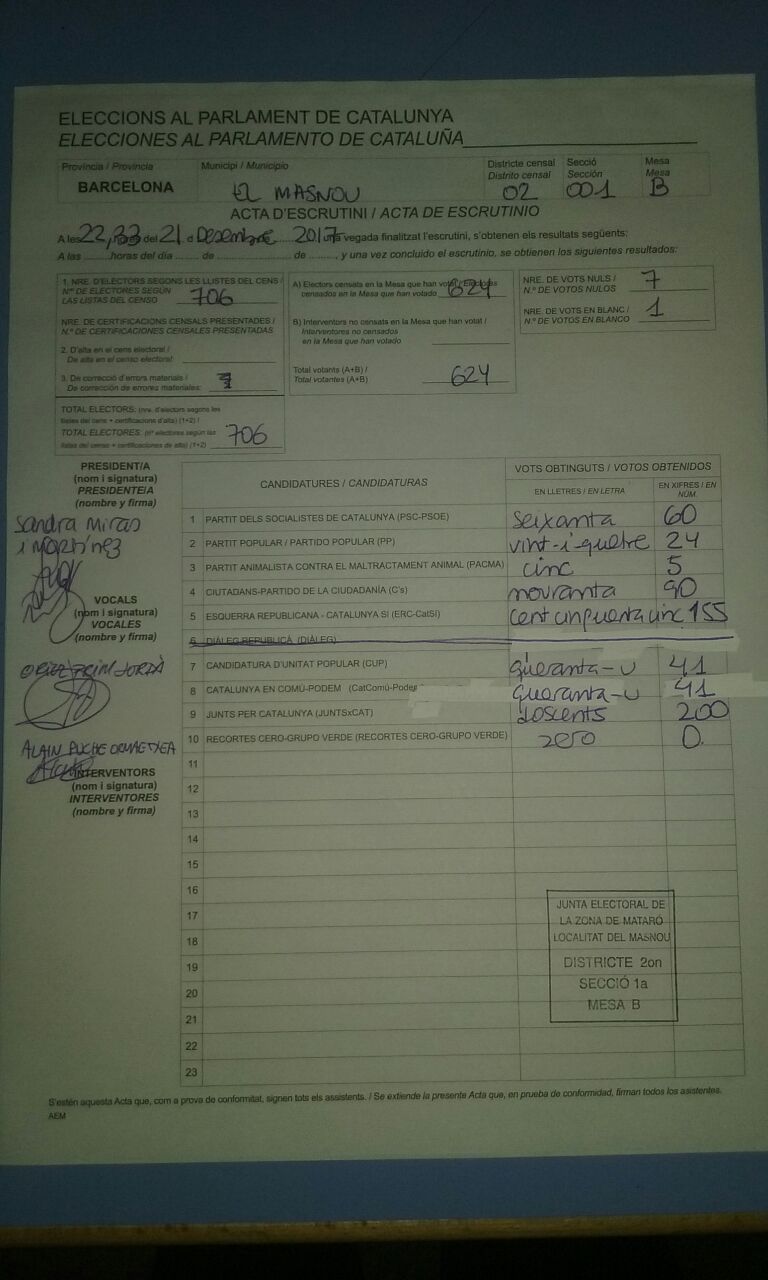 ELECCIONS AL PARLAMENT DE CATALUNYA
ELECCIONES AL PARLAMENTO DE CATALUÑA
Província / Provincia Municipi / Municipio Districte censal Secció Mesa
Distrito censal Sección Mesa
BARCELONA EL MASNOU 02 001 B
ACTA D'ESCRUTINI / ACTA DE ESCRUTINIO
A les 22,33 del 21 d Desembre 2017 una vegada finalitzat l'escrutini, s'obtenen els resultats següents:
A las ........ horas del día ........ de ........ de ........, y una vez concluido el escrutinio, se obtienen los siguientes resultados:
1. NRE. D'ELECTORS SEGONS LES LLISTES DEL CENS /
Nº DE ELECTORES SEGÚN
LAS LISTAS DEL CENSO 706
NRE. DE CERTIFICACIONS CENSALS PRESENTADES /
N.º DE CERTIFICACIONES CENSALES PRESENTADAS
2. D'alta en el cens electoral /
De alta en el censo electoral:
3. De correcció d'errors materials /
De corrección de errores materiales:
TOTAL ELECTORS: (nre. d'electors segons les
llistes del cens + certificacions d'alta) (1+2) /
TOTAL ELECTORES: (nº electores según las
listas del censo + certificaciones de alta) (1+2) 706
A) Electors censats en la Mesa que han votat / Electores
censados en la Mesa que han votado 624
B) Interventors no censats en la Mesa que han votat /
Interventores no censados
en la Mesa que han votado
Total votants (A+B) /
Total votantes (A+B) 624
NRE. DE VOTS NULS /
N.º DE VOTOS NULOS 7
NRE. DE VOTS EN BLANC /
N.º DE VOTOS EN BLANCO 1
PRESIDENT/A
(nom i signatura)
PRESIDENTE/A
(nombre y firma)
Sandra Miras
i Martínez
VOCALS
(nom i signatura)
VOCALES
(nombre y firma)
JORDÀ
ALAIN PUCHE
INTERVENTORS
(nom i signatura)
INTERVENTORES
(nombre y firma)
CANDIDATURES / CANDIDATURAS VOTS OBTINGUTS / VOTOS OBTENIDOS
EN LLETRES / EN LETRA EN XIFRES / EN NÚM.
1 PARTIT DELS SOCIALISTES DE CATALUNYA (PSC-PSOE) seixanta 60
2 PARTIT POPULAR / PARTIDO POPULAR (PP) vint-i-quatre 24
3 PARTIT ANIMALISTA CONTRA EL MALTRACTAMENT ANIMAL (PACMA) cinc 5
4 CIUTADANS-PARTIDO DE LA CIUDADANÍA (C's) nouranta 90
5 ESQUERRA REPUBLICANA - CATALUNYA SÍ (ERC-CatSí) cent cinquanta cinc 155
6 DIÀLEG REPUBLICÀ (DIÀLEG)
7 CANDIDATURA D'UNITAT POPULAR (CUP) quaranta-u 41
8 CATALUNYA EN COMÚ-PODEM (CatComú-Podem quaranta-u 41
9 JUNTS PER CATALUNYA (JUNTSxCAT) doscents 200
10 RECORTES CERO-GRUPO VERDE (RECORTES CERO-GRUPO VERDE) zero 0
11
12
13
14
15
16
17
18
19
20
21
22
23
JUNTA ELECTORAL DE
LA ZONA DE MATARÓ
LOCALITAT DEL MASNOU
DISTRICTE 2on
SECCIÓ 1a
MESA B
S'estén aquesta Acta que, com a prova de conformitat, signen tots els assistents. / Se extiende la presente Acta que, en prueba de conformidad, firman todos los asistentes.
AEM